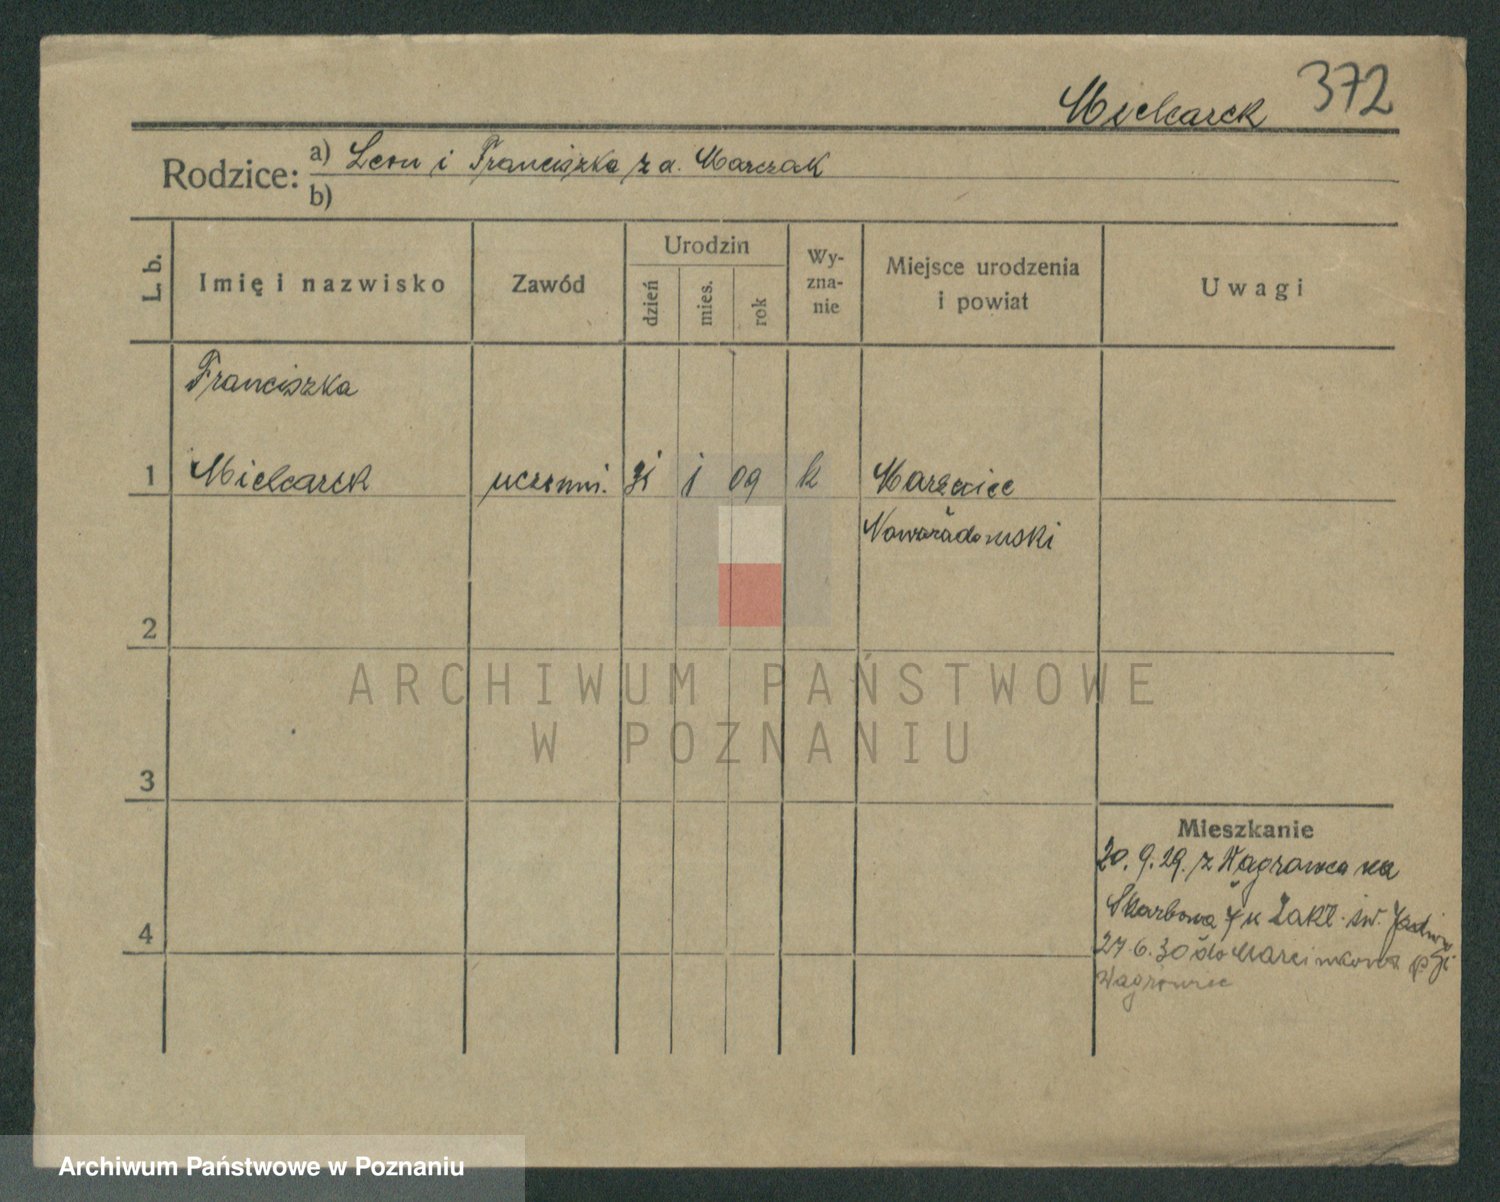 372
Mielcarek
Rodzice: a) Leon i Franciszka z d. Marczak
b)
L. b.
Imię i nazwisko
Zawód
Urodzin
dzień
mies.
rok
Wy-
zna-
nie
Miejsce urodzenia
i powiat
Uwagi
Franciszka
1 Mielcarek uczenni. 31 1 09 k
Noworadomski
2
3
4
Mieszkanie
20. 9. 29. z Wągrowca na
Skarbowa 7 u Zakł. św. Jadwi
27.6.30 do Marcinkowa p.
gi
Wągrowiec
ARCHIWUM PAŃSTWOWE
W POZNANIU
Archiwum Państwowe w Poznaniu